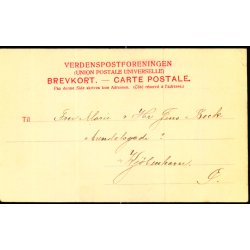 VERDENSPOSTFORENINGEN
(UNION POSTALE UNIVERSELLE)
BREVKORT. — CARTE POSTALE.
Paa denne Side skrives kun Adressen. (Côté réservé à l'adresse.)
Til Fru Marie & Hr Jens Beck
Arendalsgade
Kjøbenhavn